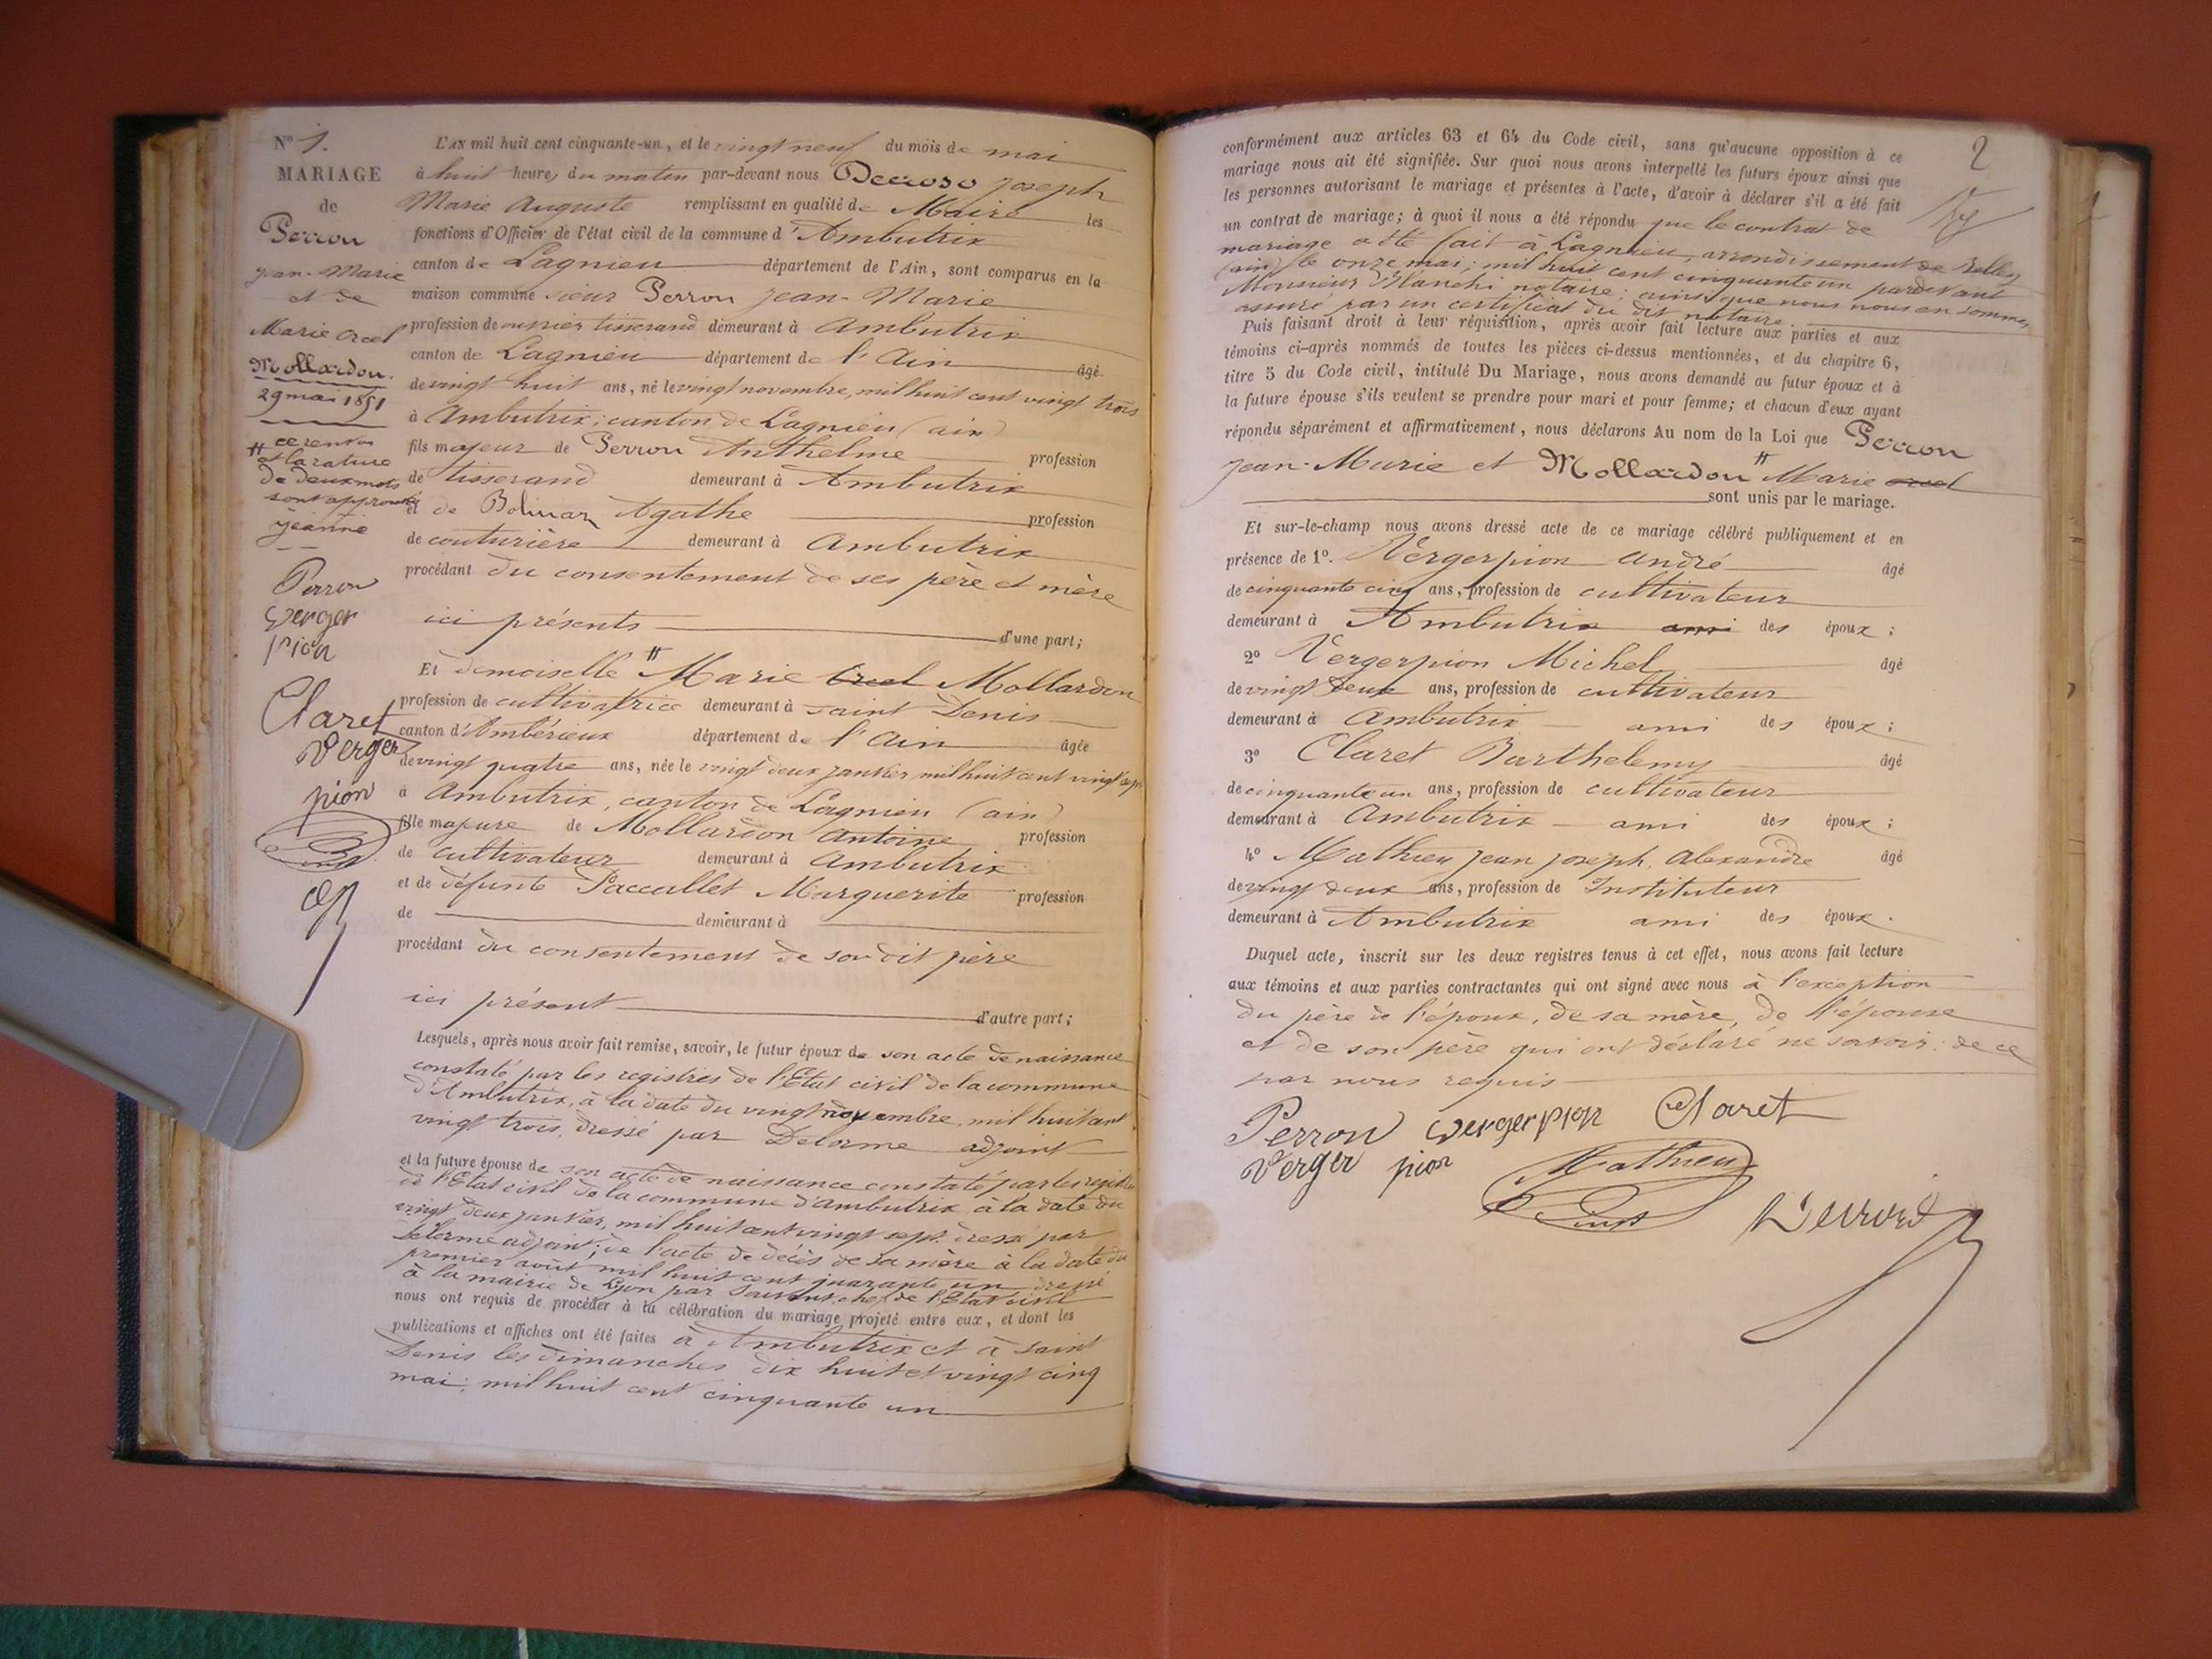 N° 1.
MARIAGE
de
Perron
Jean-Marie
et de
Marie Orcel
Mollardon.
29 mai 1851
ce renvoi
et la rature
de deux mots
sont approuvés
jeanne
Perron
verger
pion
Claret
verger
pion
L'AN mil huit cent cinquante-un, et le vingt neuf du mois de mai
à huit heures du matin par-devant nous Decroso Joseph
Marie Auguste remplissant en qualité de Maire les
fonctions d'Officier de l'état civil de la commune d'Ambutrix
canton de Lagnieu département de l'Ain, sont comparus en la
maison commune sieur Perron Jean-Marie
profession de ouvrier tisserand demeurant à Ambutrix
canton de Lagnieu département de l'Ain âgé
de vingt huit ans, né le vingt novembre, mil huit cent vingt trois
à Ambutrix; canton de Lagnieu (ain)
fils majeur de Perron Anthelme profession
de tisserand demeurant à Ambutrix
et de Agathe profession
de couturière demeurant à Ambutrix
procédant du consentement de ses père et mère
ici présents d'une part;
Et demoiselle # Marie Orcel Mollardon
profession de cultivatrice demeurant à saint Denis
canton d'Ambérieux département de l'Ain âgée
de vingt quatre ans, née le vingt deux janvier mil huit cent vingt sept
à Ambutrix, canton de Lagnieu (ain)
fille majeure de Mollardon Antoine profession
de cultivateur demeurant à Ambutrix
et de défunte Paccallet Marguerite profession
de demeurant à
procédant du consentement de son dit père
ici présent d'autre part;
Lesquels, après nous avoir fait remise, savoir, le futur époux de son acte de naissance
constaté par les registres de l'Etat civil de la commune
d'Ambutrix, à la date du vingt novembre, mil huit cent
vingt trois, dressé par Delorme adjoint
et la future épouse de son acte de naissance constaté par les registres
de l'Etat civil de la commune d'Ambutrix à la date du
vingt deux janvier, mil huit cent vingt sept dressé par
Delorme adjoint; de l'acte de décès de sa mère à la date du
premier août mil huit cent quarante un dressé
à la mairie de Lyon par chef de l'Etat civil
nous ont requis de procéder à la célébration du mariage projeté entre eux, et dont les
publications et affiches ont été faites à Ambutrix et à saint
Denis les dimanches dix huit et vingt cinq
mai; mil huit cent cinquante un
2
conformément aux articles 63 et 64 du Code civil, sans qu'aucune opposition à ce
mariage nous ait été signifiée. Sur quoi nous avons interpellé les futurs époux ainsi que
les personnes autorisant le mariage et présentes à l'acte, d'avoir à déclarer s'il a été fait
un contrat de mariage; à quoi il nous a été répondu que le contrat de
mariage a été fait à Lagnieu, arrondissement de Belley
(ain) le onze mai; mil huit cent cinquante un pardevant
Monsieur notaire; ainsi que nous nous en sommes
assuré par un certificat du dit notaire.
Puis faisant droit à leur réquisition, après avoir fait lecture aux parties et aux
témoins ci-après nommés de toutes les pièces ci-dessus mentionnées, et du chapitre 6,
titre 5 du Code civil, intitulé Du Mariage, nous avons demandé au futur époux et à
la future épouse s'ils veulent se prendre pour mari et pour femme; et chacun d'eux ayant
répondu séparément et affirmativement, nous déclarons Au nom de la Loi que Perron
Jean-Marie et Mollardon # Marie orcel
sont unis par le mariage.
Et sur-le-champ nous avons dressé acte de ce mariage célébré publiquement et en
présence de 1°. Vergerpion André âgé
de cinquante cinq ans, profession de cultivateur
demeurant à Ambutrix ami des époux;
2° Vergerpion Michel âgé
de vingt deux ans, profession de cultivateur
demeurant à Ambutrix ami des époux;
3° Claret Barthelemy âgé
de cinquante un ans, profession de cultivateur
demeurant à Ambutrix ami des époux;
4° Mathieu Jean Joseph Alexandre âgé
de vingt deux ans, profession de Instituteur
demeurant à Ambutrix ami des époux.
Duquel acte, inscrit sur les deux registres tenus à cet effet, nous avons fait lecture
aux témoins et aux parties contractantes qui ont signé avec nous à l'exception
du père de l'époux, de sa mère, de l'épouse
et de son père qui ont déclaré ne savoir: de ce
par nous requis
Perron vergerpion Claret
verger pion Mathieu